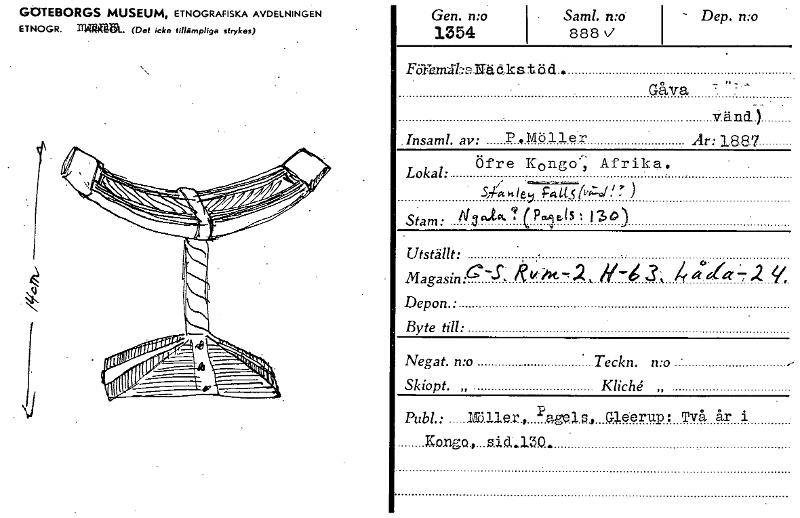 GÖTEBORGS MUSEUM, ETNOGRAFISKA AVDELNINGEN
ETNOGR. ARKEOL. (Det icke tillämpliga strykes)
14cm
Gen. n:o Saml. n:o Dep. n:o
1354 888 ✓
Föremål: Nackstöd.
Gåva
vänd)
Insaml. av: P.Möller År: 1887
Lokal: Öfre Kongo, Afrika.
Stanley Falls (vänd!?)
Stam: Ngala? (Pagels: 130)
Utställt:
Magasin: G-S. Rum-2. H-63. Låda-24.
Depon.:
Byte till:
Negat. n:o Teckn. n:o
Skiopt. „ Kliché „
Publ.: Möller, Pagels, Gleerup: Två år i
Kongo, sid.130.